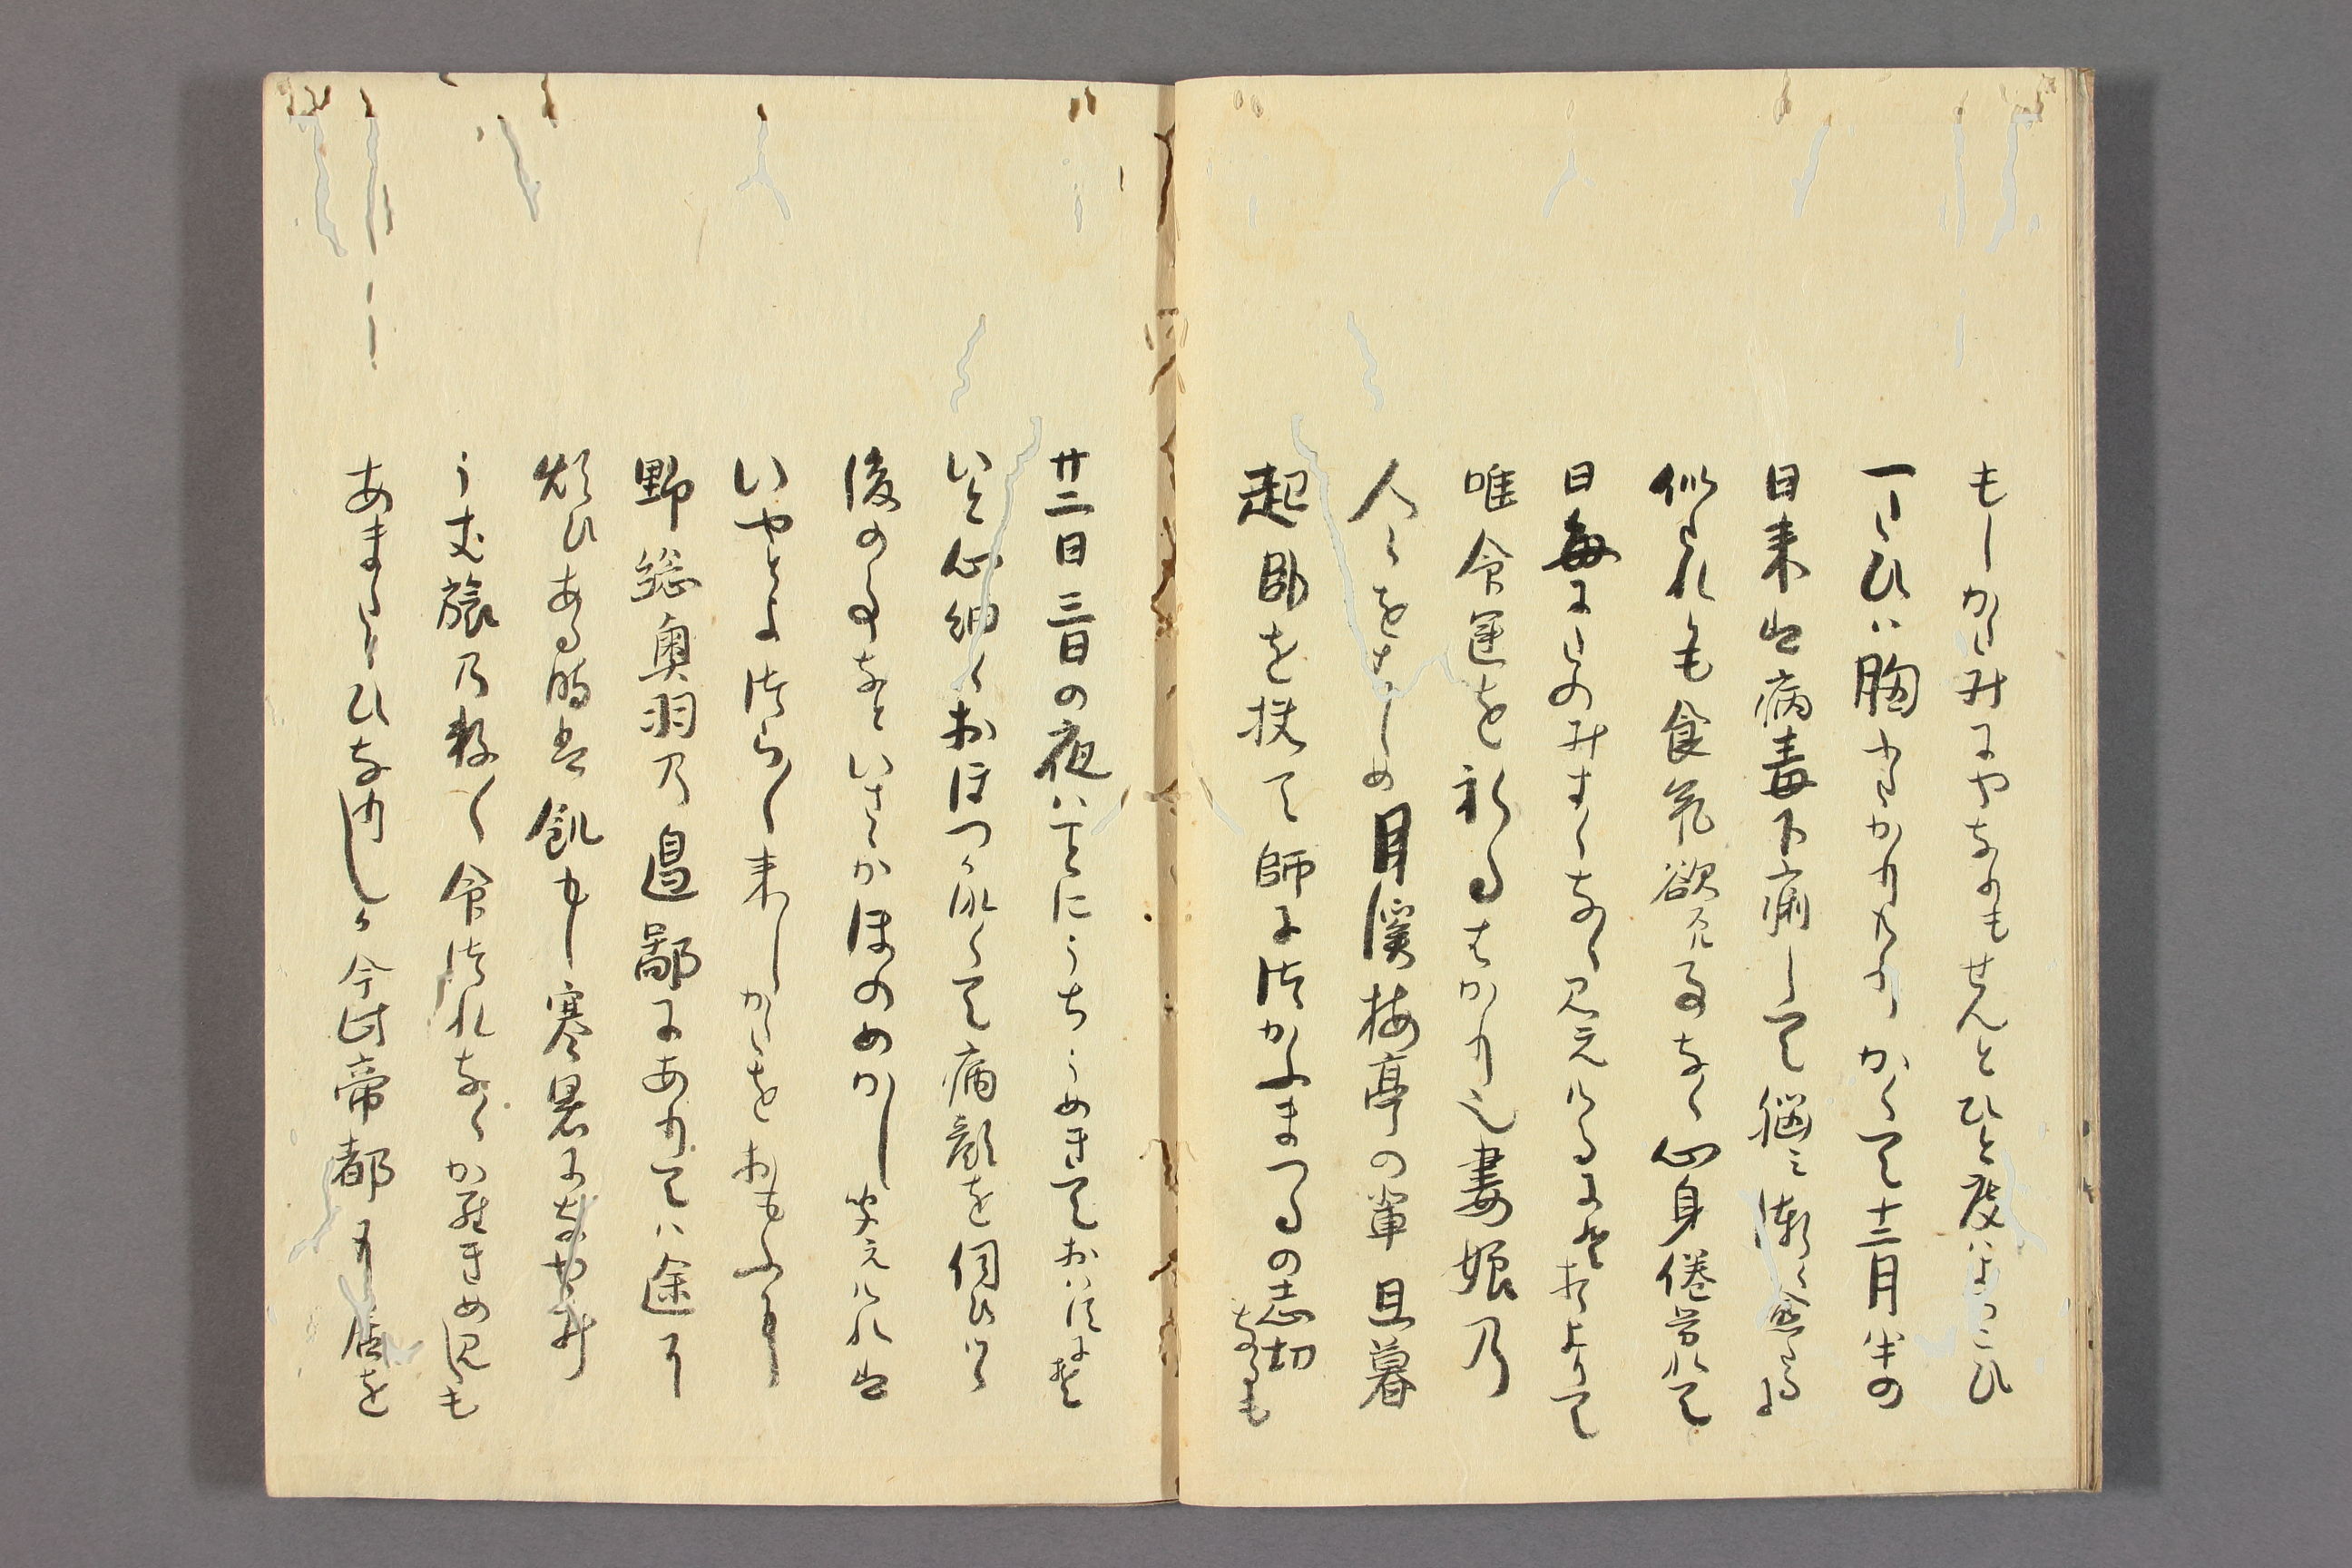 もしかたみにやなりもせんとひと度はよろこひ
一たひは胸ふたかりけり かくて十二月半の
日来の病毒下痢して悩ミ漸々
似たれとも食気欲スる事なく心身倦労れて
日毎によはのみまくなく見元けるにそ
唯命運を祈るはかりも妻娘乃
人々をはしめ月溪梅亭の輩旦暮
起臥を扶て師につかふまつるの志切なるも
廿二日三日の夜はことにうちうめきておはすにそ
いと心細くおほつかなくて病顔を伺ひける
後の事なといさゝかほのめかし聞えけれは
いやとよつらつら来しかたをおもふに
野総奥羽乃辺鄙にありては途に
煩ひある時は飢もし寒暑になやみ
うき旅乃数々命つれなくからきめ見しも
あまたゝひなりしか今此帝都に居を